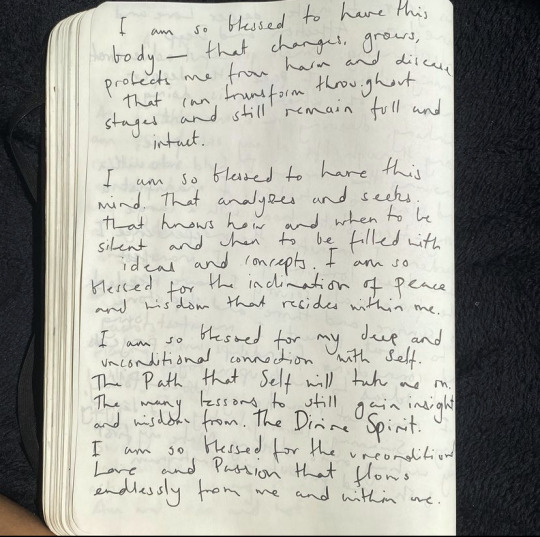 I am so blessed to have this
body — that changes, grows,
protects me from harm and disease
that can transform throughout
stages and still remain full and
intact.
I am so blessed to have this
mind. That analyzes and seeks.
That knows how and when to be
silent and when to be filled with
ideas and concepts. I am so
blessed for the inclination of peace
and wisdom that resides within me.
I am so blessed for my deep and
unconditional connection with Self.
The Path that Self will take me on.
The many lessons to still gain insight
and wisdom from. The Divine Spirit.
I am so blessed for the unconditional
Love and Passion that flows
endlessly from me and within me.